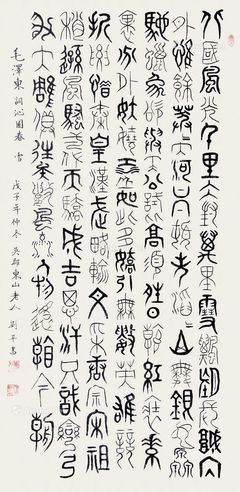 北國風光千里冰封萬里雪飄望長城內
外惟餘莽莽大河上下頓失滔滔山舞銀蛇原
馳蠟象欲與天公試比高須晴日看紅裝素
裹分外妖嬈江山如此多嬌引無數英雄競
折腰惜秦皇漢武略輸文采唐宗宋祖
稍遜風騷一代天驕成吉思汗只識彎弓
射大雕俱往矣數風流人物還看今朝
毛澤東詞沁園春 雪 戊子年仲冬 吳郡東山老人 劉平